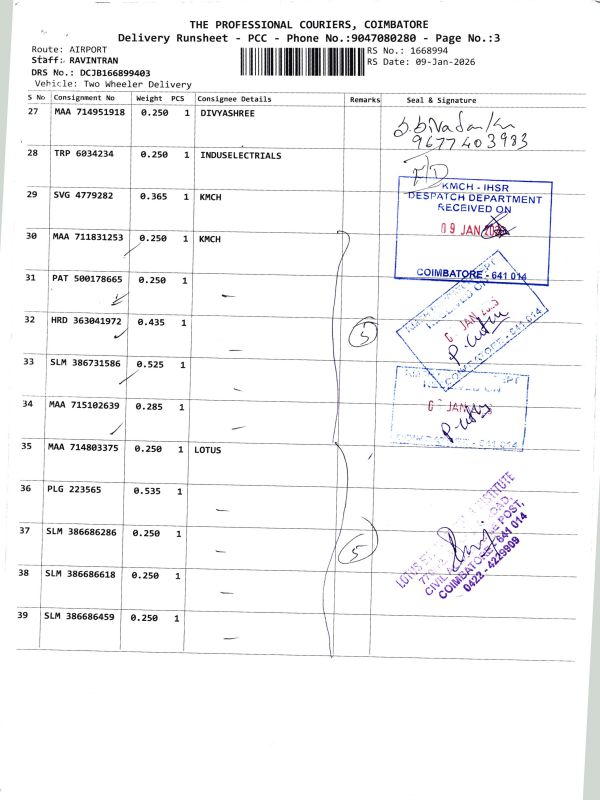 THE PROFESSIONAL COURIERS, COIMBATORE
Delivery Runsheet - PCC - Phone No.:9047080280 - Page No.:3
Route: AIRPORT
RS No.: 1668994
Staff: RAVINTRAN
RS Date: 09-Jan-2026
DRS No.: DCJB166899403
Vehicle: Two Wheeler Delivery
S No Consignment No Weight PCS Consignee Details Remarks Seal & Signature
27 MAA 714951918 0.250 1 DIVYASHREE
9677403983
28 TRP 6034234 0.250 1 INDUSELECTRIALS
F/D
29 SVG 4779282 0.365 1 KMCH
KMCH - IHSR
DESPATCH DEPARTMENT
RECEIVED ON
09 JAN
COIMBATORE - 641 014
30 MAA 711831253 0.250 1 KMCH
31 PAT 500178665 0.250 1 —
32 HRD 363041972 0.435 1 —
5
JAN
COIMBATORE - 641 014
33 SLM 386731586 0.525 1 —
34 MAA 715102639 0.285 1 —
JAN
641 014
35 MAA 714803375 0.250 1 LOTUS
36 PLG 223565 0.535 1 —
37 SLM 386686286 0.250 1 —
5
LOTUS
INSTITUTE
CIVIL
POST,
COIMBATORE - 641 014
0422 - 4229909
38 SLM 386686618 0.250 1 —
39 SLM 386686459 0.250 1 —